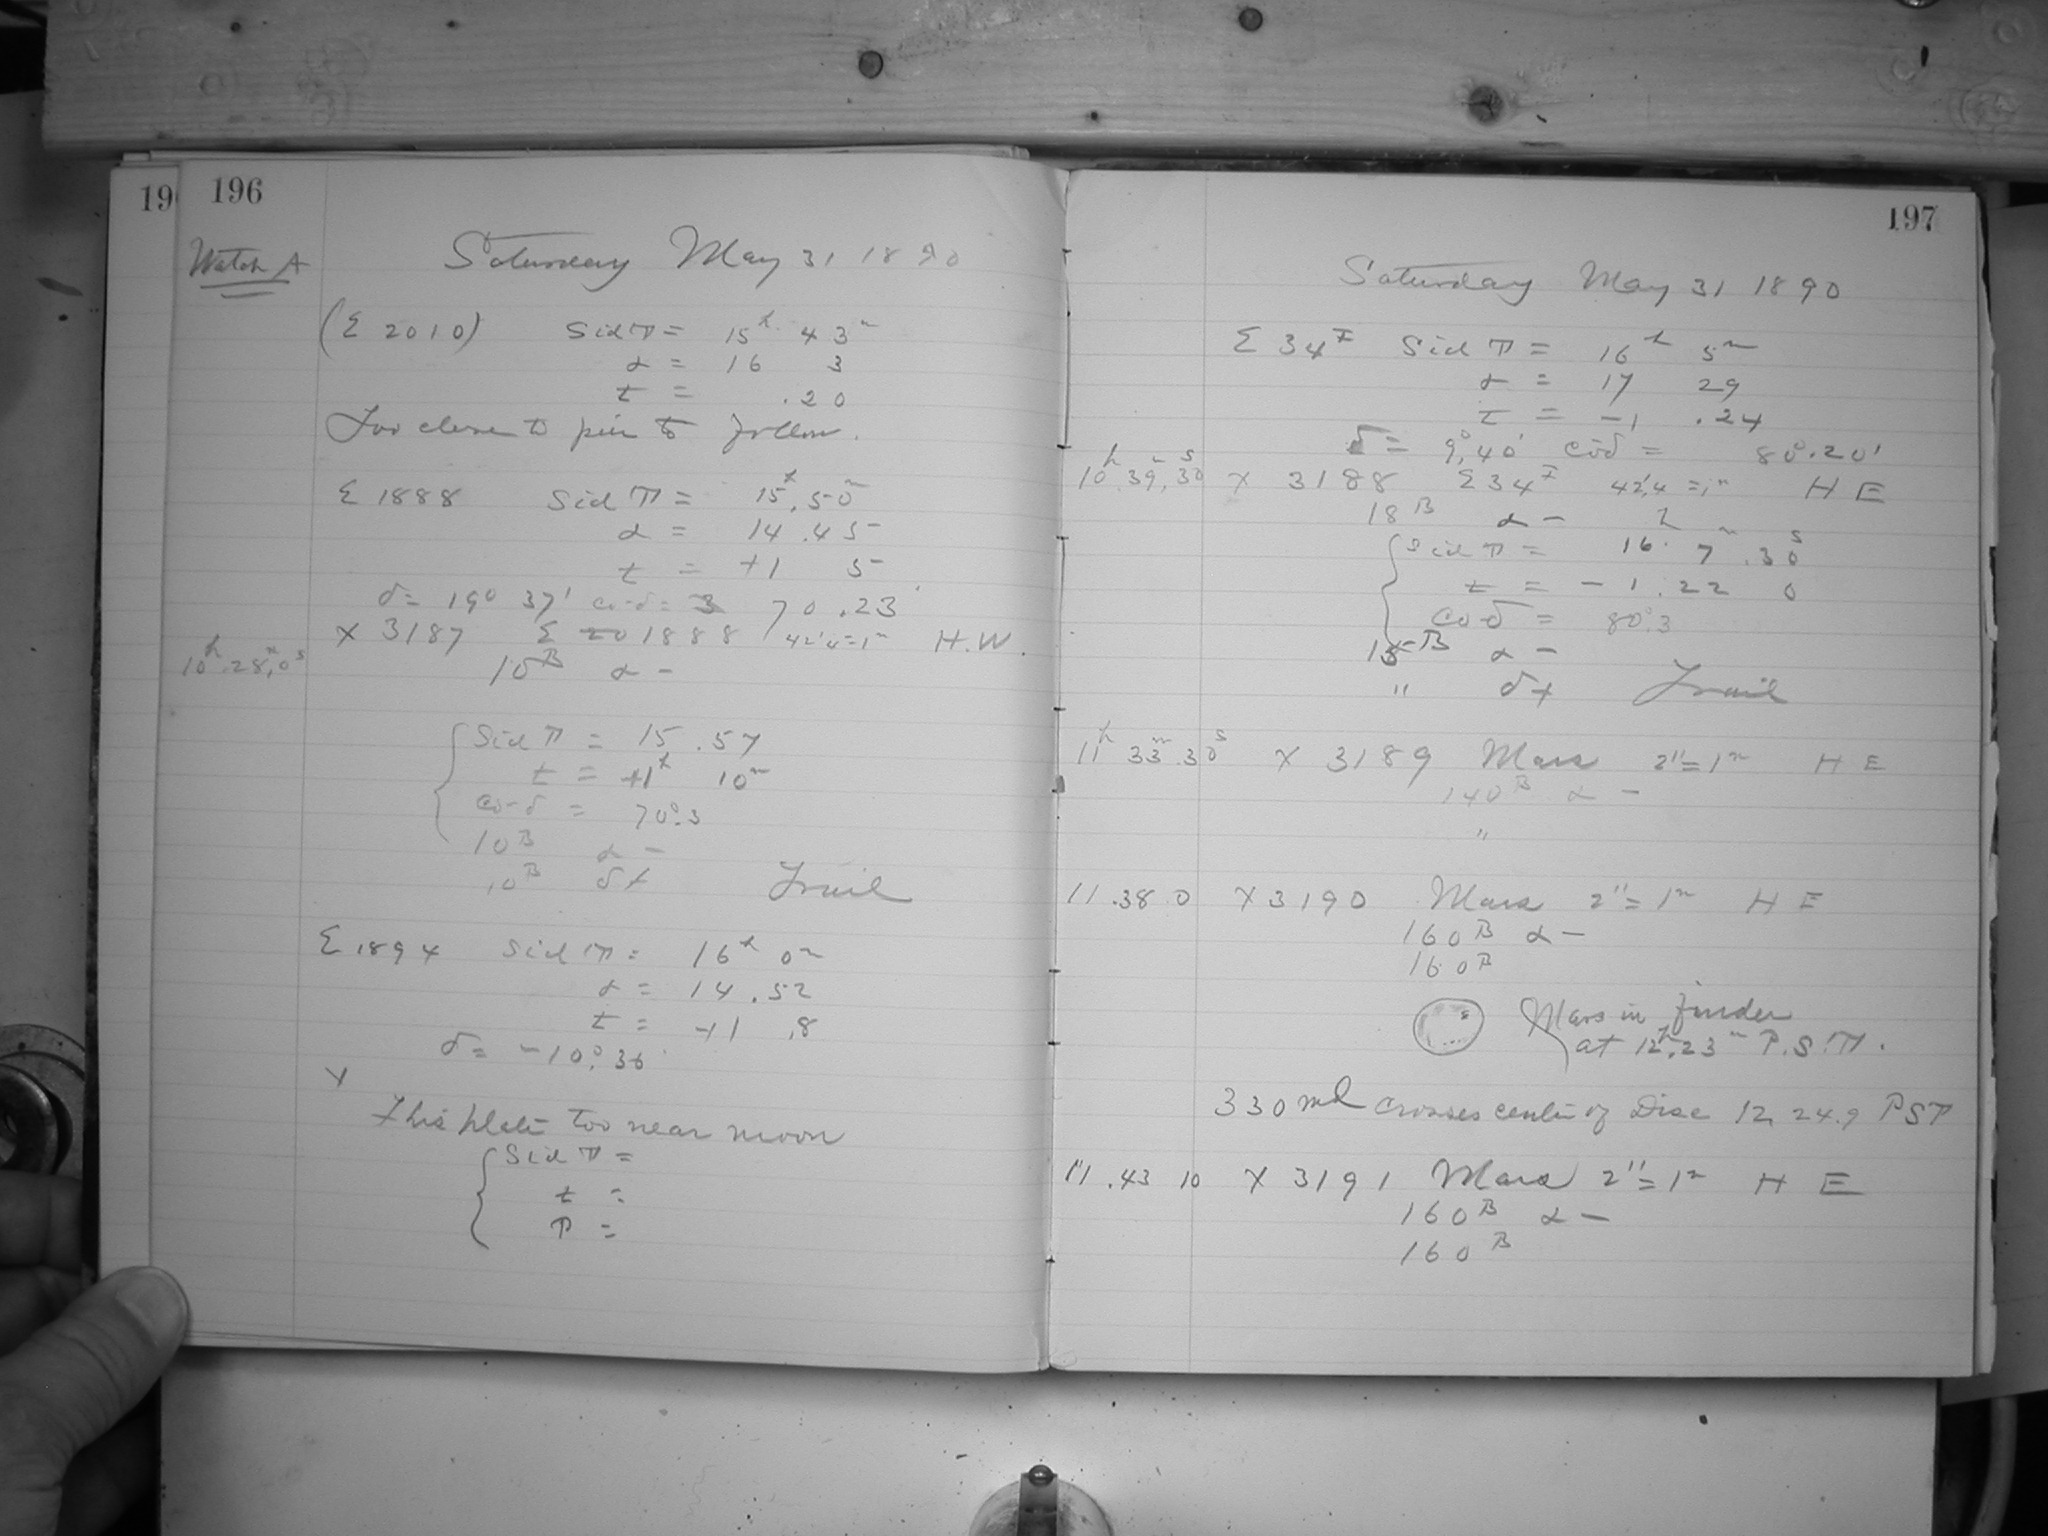 19
196
Watch A
Saturday May 31 1890
(Σ 2010) Sid T = 15h 43m
α = 16 3
t = .20
Too close to pier to follow.
Σ 1888 Sid T = 15h.50m
α = 14.45
t = +1 5
δ = 19° 37' co-δ = 70.23'
X 3187 Σ 1888 42'.4=1m H.W.
10h.28m.0s
10B α -
Sid T = 15.57
t = +1h 10m
co-δ = 70°.3
10B α -
10B δ+ Trail
Σ 1894 Sid T = 16h 0m
α = 14.52
t = +1 .8
δ = -10°.36'
X
This plate too near moon
Sid T =
t =
P =
197
Saturday May 31 1890
Σ 34I Sid T = 16h 5m
α = 17 29
t = -1 .24
δ = 9°.40' co δ = 80°.20'
10h.39m.30s X 3188 Σ34I 42'.4=1m H E
18B α -
Sid T = 16h 7m.30s
t = -1.22 0
co δ = 80°.3
15B α -
" δ+ Trail
11h 33m.30s X 3189 Mars 2"=1m H E
140B α -
"
11.38 0 X 3190 Mars 2"=1m H E
160B α -
160B
Mars in finder
at 12h.23m P.S.T.
330 md crosses center of Disc 12 24.9 PST
11.43 10 X 3191 Mars 2"=1m H E
160B α -
160B